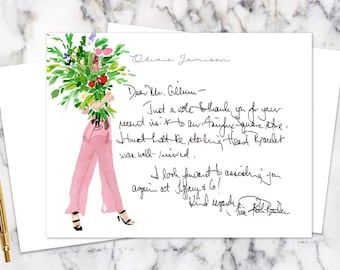 Olivia Jamison
Dear Mr.
Just a note to thank you for your
recent visit to our store.
I trust that the Sterling Heart Bracelet
was well received.
I look forward to assisting you
again at Tiffany & Co!
Kind regards,